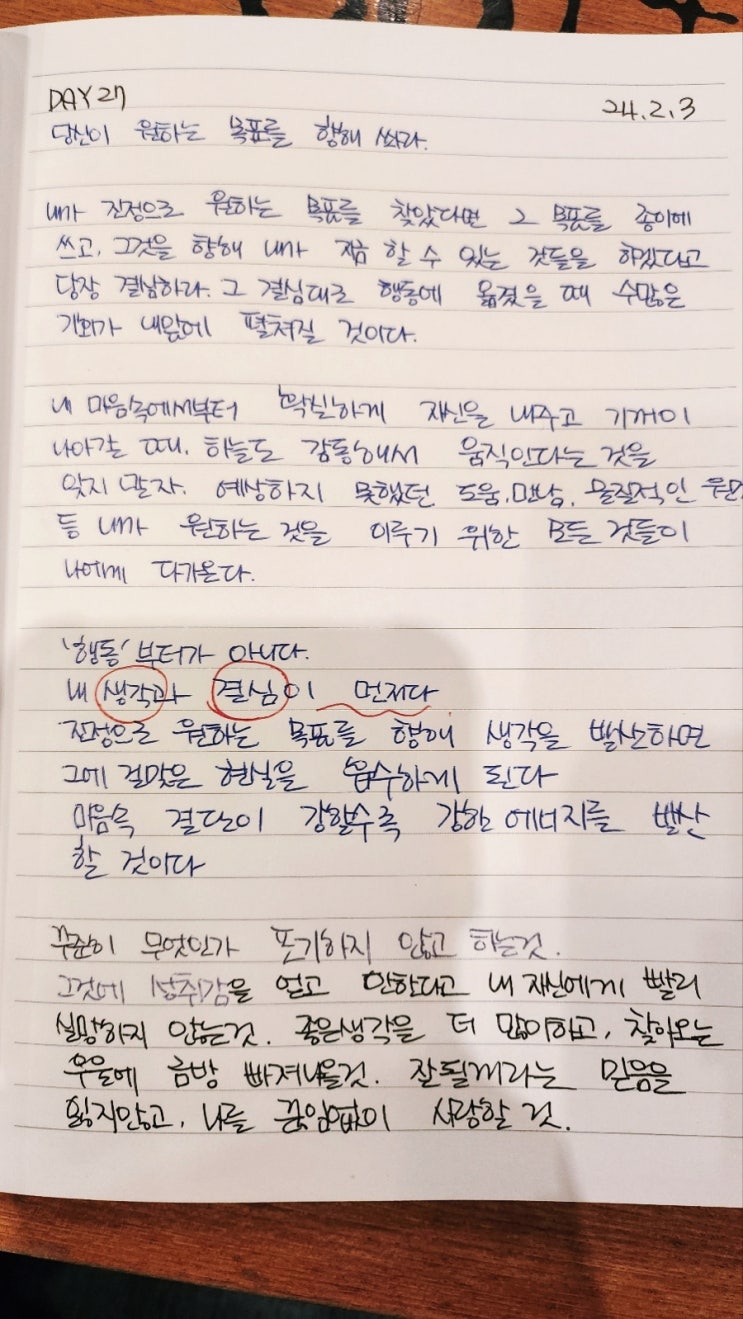 DAY 27
24.2.3
당신이 원하는 목표를 향해 쏴라.
내가 진정으로 원하는 목표를 찾았다면 그 목표를 종이에
쓰고, 그것을 향해 내가 지금 할 수 있는 것들을 하겠다고
당장 결심하라. 그 결심대로 행동에 옮겼을 때 수많은
기회가 내앞에 펼쳐질 것이다.
내 마음속에서부터 확실하게 자신을 내주고 기꺼이
나아갈 때, 하늘도 감동해서 움직인다는 것을
잊지 말자. 예상하지 못했던 도움, 만남, 물질적인
등 내가 원하는 것을 이루기 위한 모든 것들이
나에게 다가온다.
'행동'부터가 아니다.
내 생각과 결심이 먼저다
진정으로 원하는 목표를 향해 생각을 발산하면
그에 걸맞은 현실을 흡수하게 된다
마음속 결단이 강할수록 강한 에너지를 발산
할 것이다
꾸준히 무엇인가 포기하지 않고 하는것.
그것에 성취감을 얻고 안한다고 내 자신에게 빨리
실망하지 않는것. 좋은생각을 더 많이하고, 찾아오는
우울에 금방 빠져나올것. 잘될꺼라는 믿음을
잃지않고, 나를 끊임없이 사랑할 것.